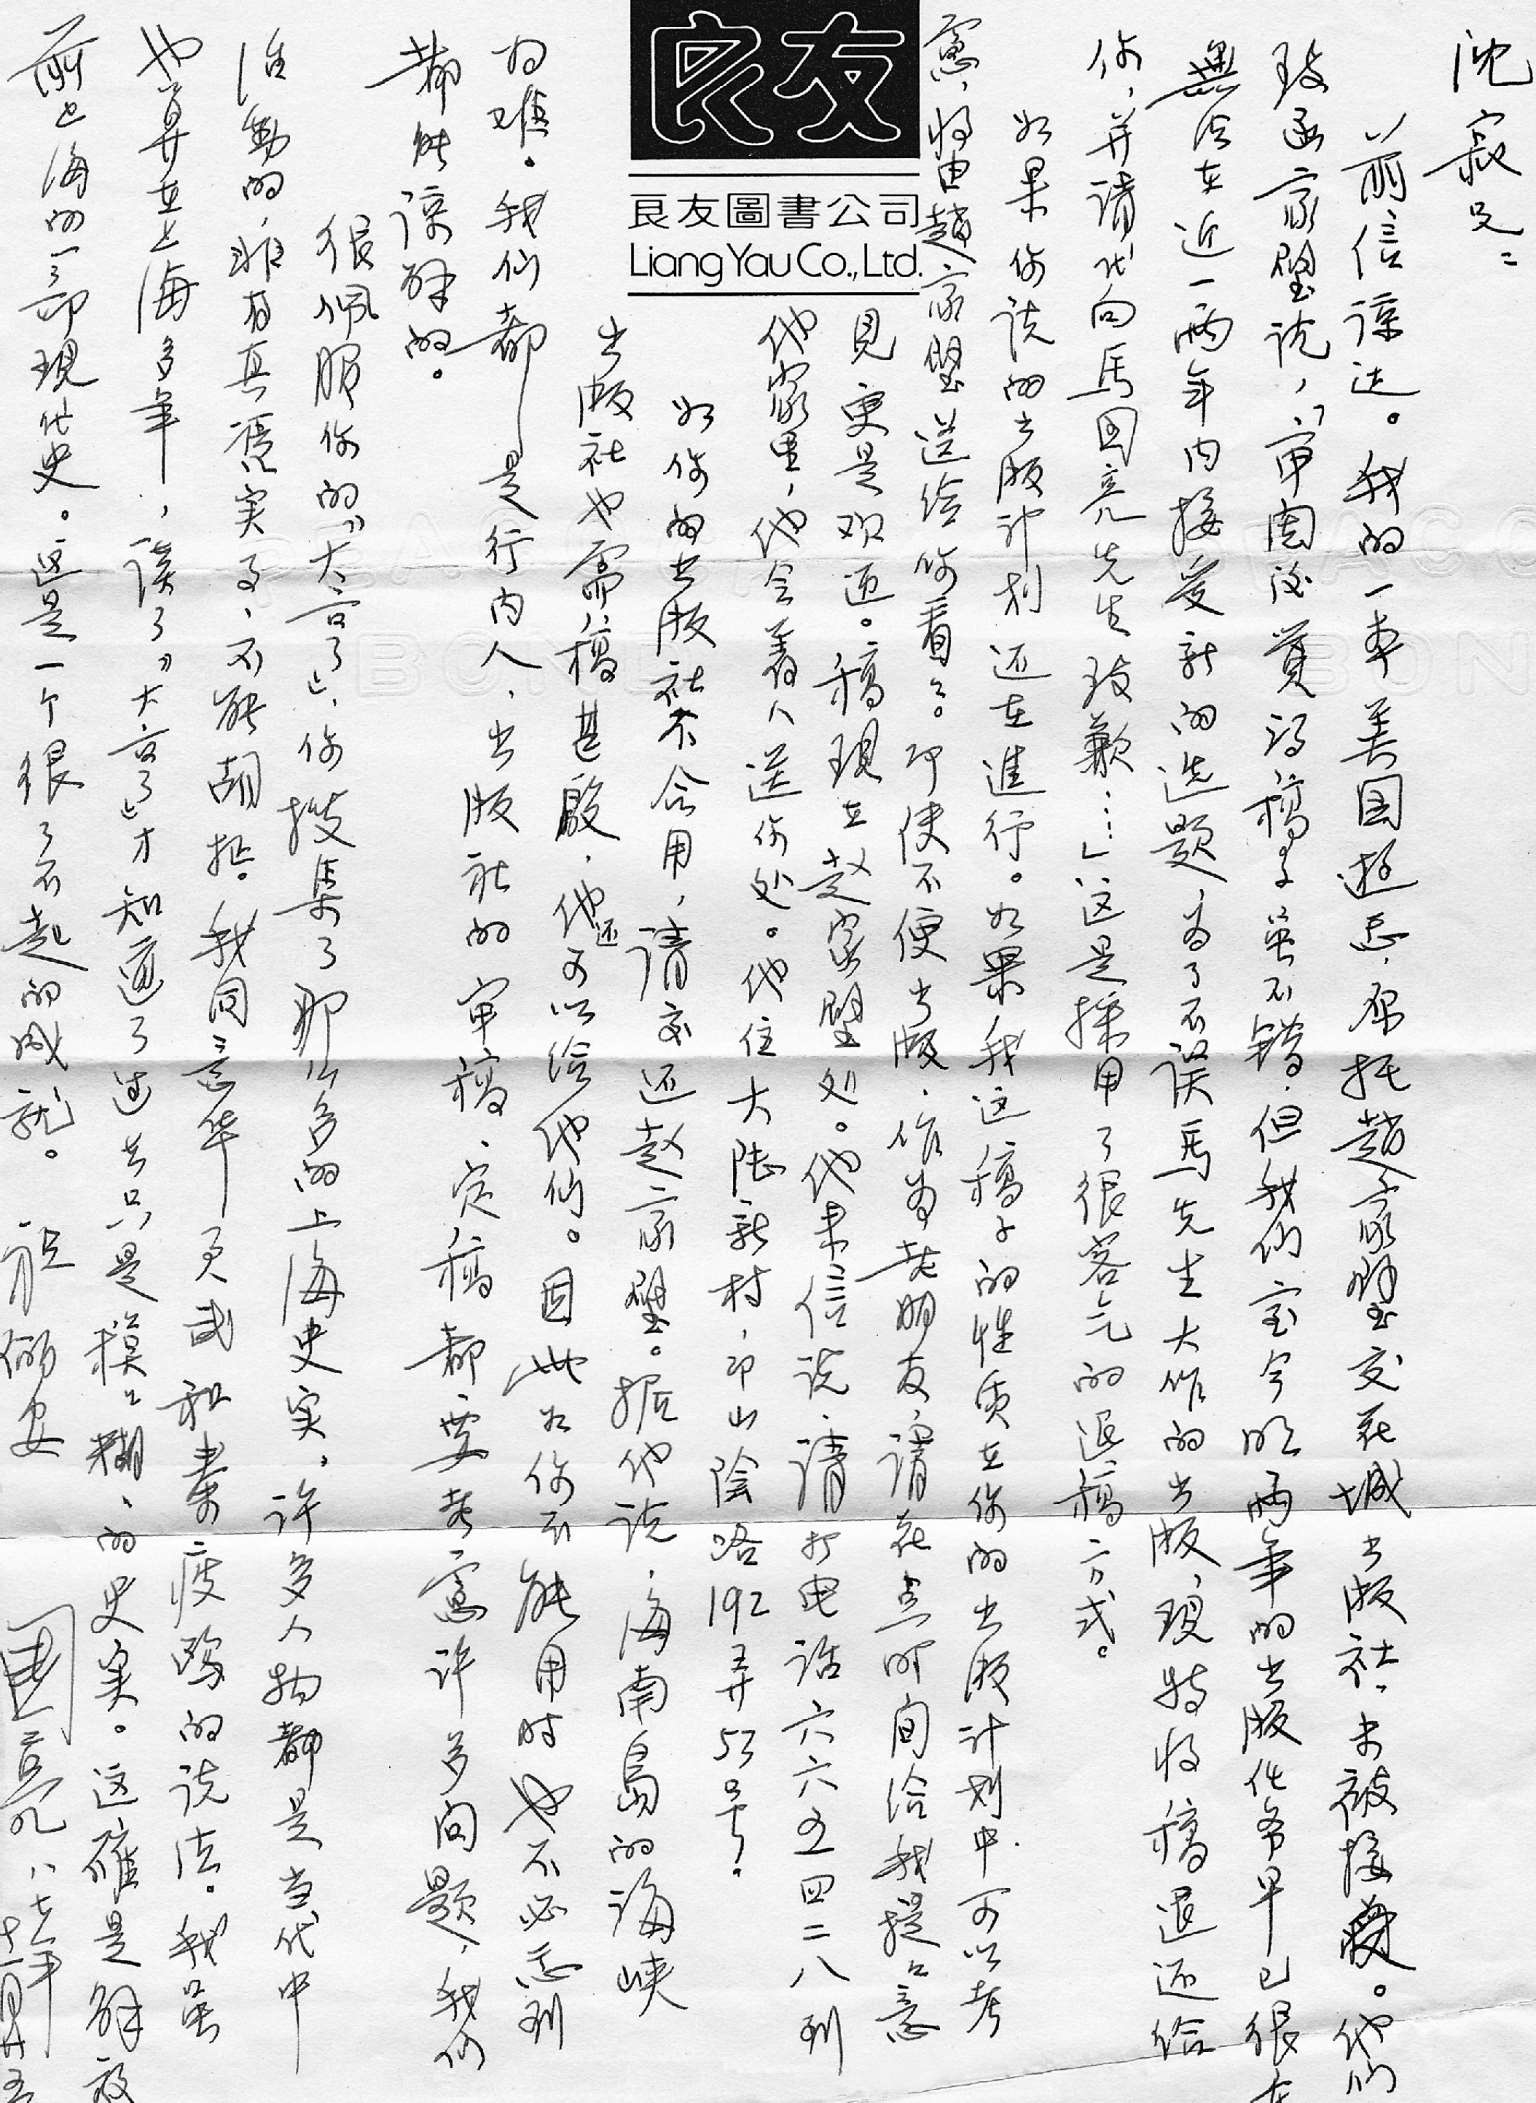 沈寂兄：
前信谅达。我的一本美国游志，原托赵家璧交花城出版社，未被接受。他们
致函家璧说，“审阅后觉得稿子虽不错，但我们室今明两年的出版任务早已很
無法在近一两年内接受新的选题，为了不误馬先生大作的出版，现特将稿退还给
你，并请代向馬国亮先生致歉……」这是採用了很客气的退稿方式。
如果你谈的出版计划还在進行。如果我这稿子的性质在你的出版计划中可以考
慮，将由趙家璧送给你看看。即使不便出版，作为老朋友，请花点时间给我提点意
見更是欢迎。稿现在赵家璧处。他来信说，请打电话六六五四二八到
他家里，他会着人送你处。他住大陆新村，即山陰路192弄53号。
如你的出版社不合用，请交还赵家璧。据他说，海南島的海峡
出版社也需稿甚殷，他还可以给他们。因此如你不能用时也不必感到
为难。我们都是行内人，出版社的审稿、定稿都要考慮许多问题，我们
都能谅解的。
很佩服你的“大亨”，你搜集了那么多的上海史实，许多人物都是当代中
活動的，非有真憑实了，不能胡扯。我同意华君武和秦瘦鸥的说法。我虽
也算在上海多年，读了“大亨”才知道了过去只是模模糊糊的史实。这確是解放
前上海的一部現代史。这是一个很了不起的成就。祝
俪安
国亮 八七年十一月廿五
良友
良友圖書公司
Liang Yau Co., Ltd.
BOND